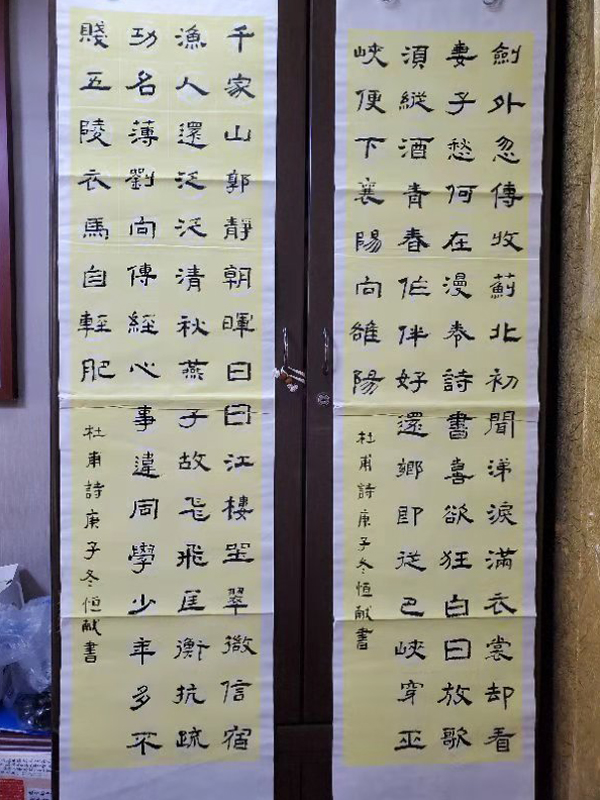 劍外忽傳收薊北初聞涕淚滿衣裳却看
妻子愁何在漫卷詩書喜欲狂白日放歌
須縱酒青春作伴好還鄉即從巴峽穿巫
峽便下襄陽向雒陽
杜甫詩庚子冬恒献書
千家山郭靜朝暉日日江樓坐翠微信宿
漁人還泛泛清秋燕子故飞飛匡衡抗疏
功名薄劉向傳經心事違同學少年多不
賤五陵衣馬自輕肥
杜甫詩庚子冬恒献書